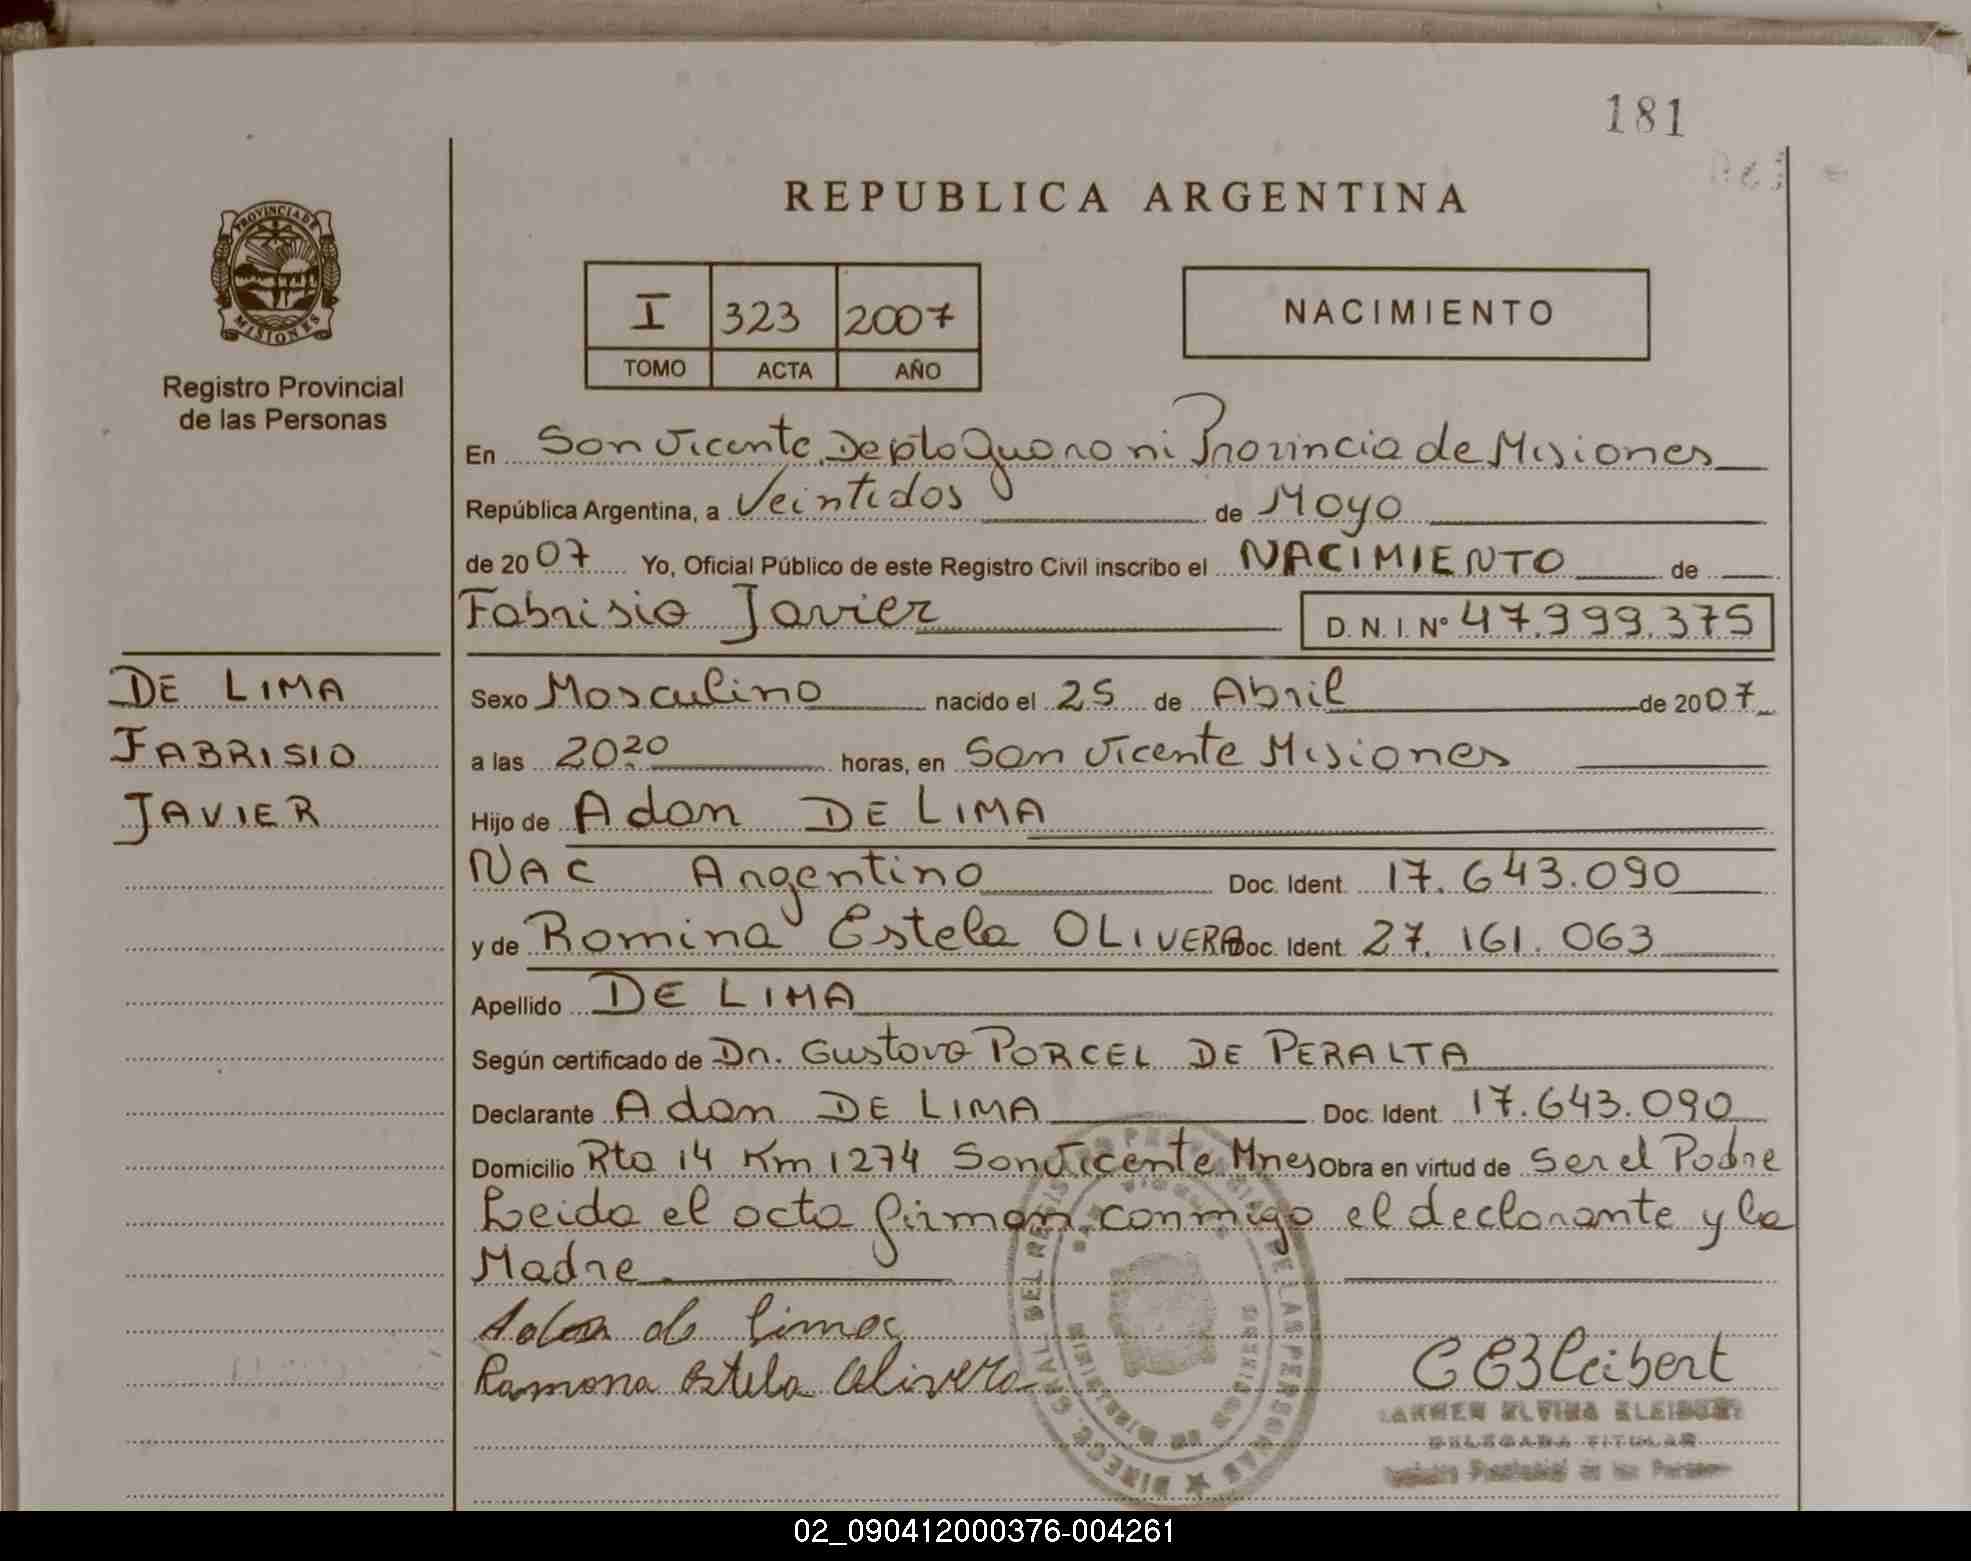 181
REPUBLICA ARGENTINA
PROVINCIA DE
MISIONES
Registro Provincial
de las Personas
I 323 2007
TOMO ACTA AÑO
NACIMIENTO
En San Vicente Depto Guarani Provincia de Misiones
República Argentina, a Veintidos de Mayo
de 2007 Yo, Oficial Público de este Registro Civil inscribo el NACIMIENTO de
Fabrisio Javier D. N. I. Nº 47.999.375
DE LIMA
FABRISIO
JAVIER
Sexo Masculino nacido el 25 de Abril de 2007
a las 20 20 horas, en San Vicente Misiones
Hijo de Adan DE LIMA
NAC Argentino Doc. Ident. 17.643.090
y de Romina Estela OLIVERA Doc. Ident. 27.161.063
Apellido DE LIMA
Según certificado de Dr. Gustavo PORCEL DE PERALTA
Declarante Adan DE LIMA Doc. Ident. 17.643.090
Domicilio Rta 14 Km 1274 San Vicente Mnes Obra en virtud de ser el Padre
Leida el acta firman conmigo el declarante y la
Madre
Adan de Lima
Ramona Estela Olivera
CEKleibert
CARMEN ELVIRA KLEIBERT
DELEGADA TITULAR
Registro Provincial de las Personas
02_090412000376-004261